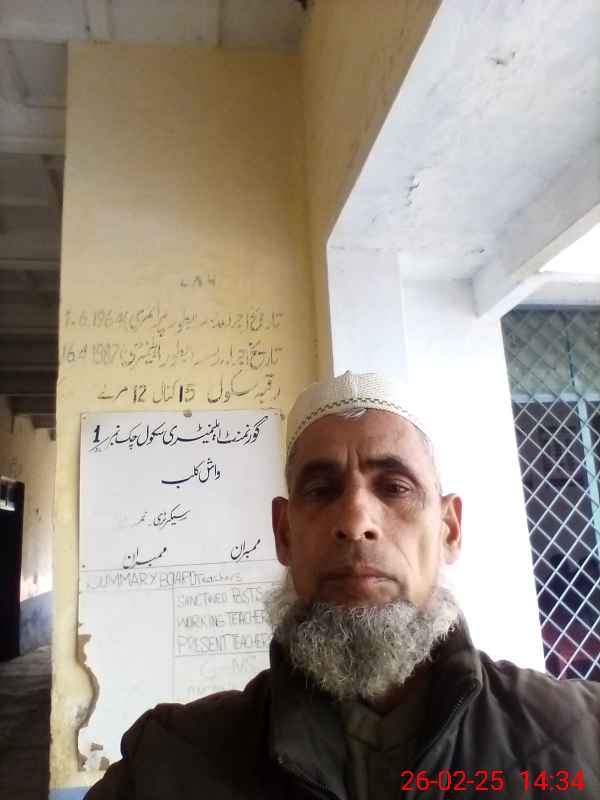 تاریخ اجراء سکول بطور پرائمری 1.6.1964
تاریخ اجراء بطور ایلیمنٹری 16.4.1987
رقبہ سکول 15 کنال 12 مرلے
گورنمنٹ ایلیمنٹری سکول چک نمبر 1
واش کلب
سیکرٹری
ممبران
ممبران
SUMMARY BOARD Teachers
SANCTINED POSTS
WORKING TEACHER
PRESENT TEACHER
26-02-25 14:34